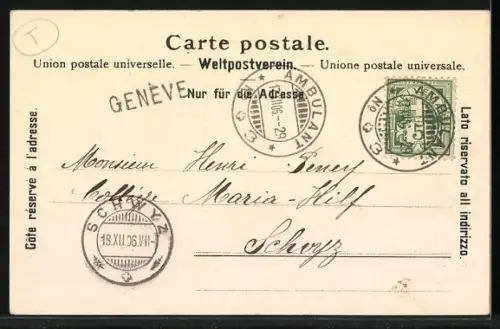 T
Carte postale.
Union postale universelle. — Weltpostverein. — Unione postale universale.
Nur für die Adresse.
GENÈVE
AMBULANT
AMBULANT
5
Côté réservé à l'adresse.
Lato riservato all indirizzo.
Monsieur Henri
Collège Maria-Hilf
Schwyz
SCHWYZ